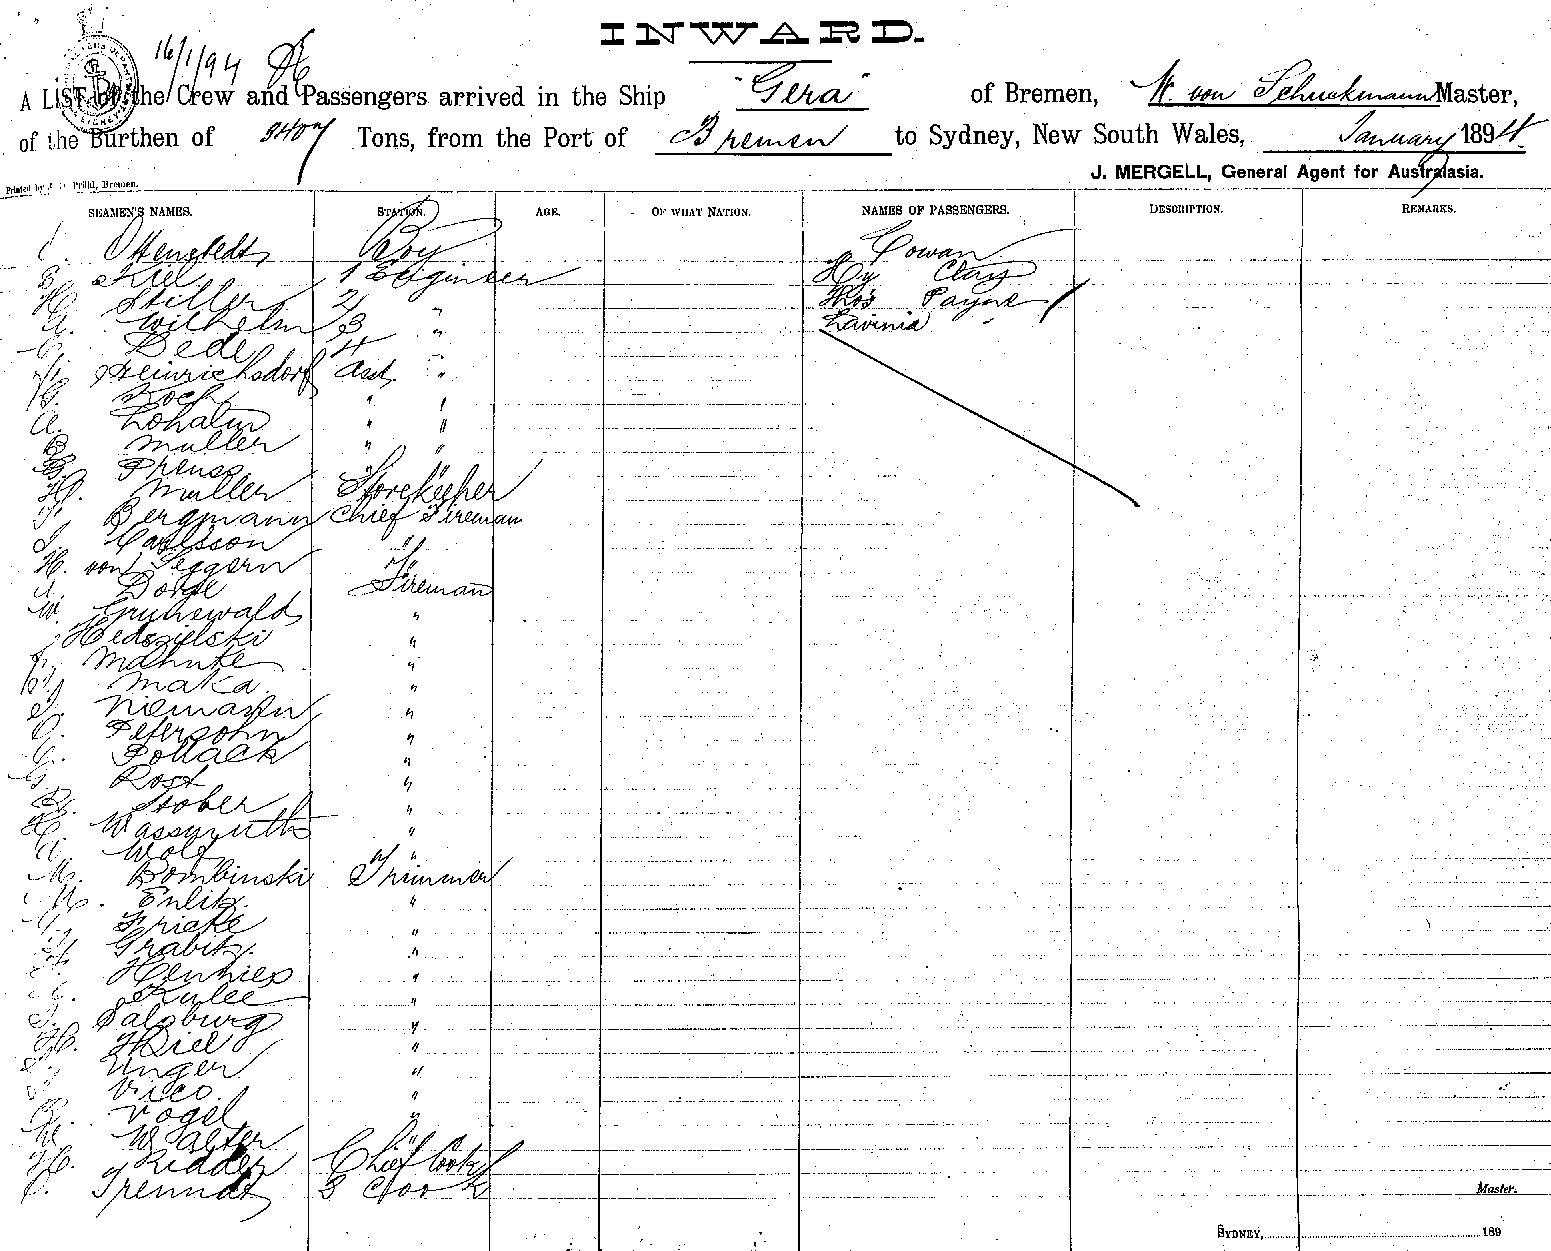 INWARD.
16/1/94
A LIST of the Crew and Passengers arrived in the Ship "Gera" of Bremen, W. von Schuckmann Master,
of the Burthen of Tons, from the Port of Bremen to Sydney, New South Wales, January 1894.
J. MERGELL, General Agent for Australasia.
Printed by Bremen.
SEAMEN'S NAMES. STATION. AGE. OF WHAT NATION. NAMES OF PASSENGERS. DESCRIPTION. REMARKS.
Boy Cowan
Kiel 1 Engineer Hy Clay
H. Stiller 2 " Thos Payne
Wilhelm 3 " Lavinia
Dede 4 "
Heinrichsdorf Asst. "
G. Koch " "
A. Lohalm " "
B. Muller " "
Preuss " "
H. Muller Storekeeper
Bergmann Chief Fireman
Carlsson "
H. von Seggern "
Dorge Fireman
W. Grunswald "
Hedszielski "
Mahnke "
Maka "
Niemann "
O. Petersohn "
Pollack "
G. Rost "
Stober "
H. Wassmuth "
Wolf " "
M. Bombinski Trimmer
M. "
Fricke "
Grabitz. "
Hennies "
"
Salzburg "
H. "
Unger "
Vico. "
Vogel "
Walter "
H. Ridder Chief Cook
2 Cook
Master.
SYDNEY, 189